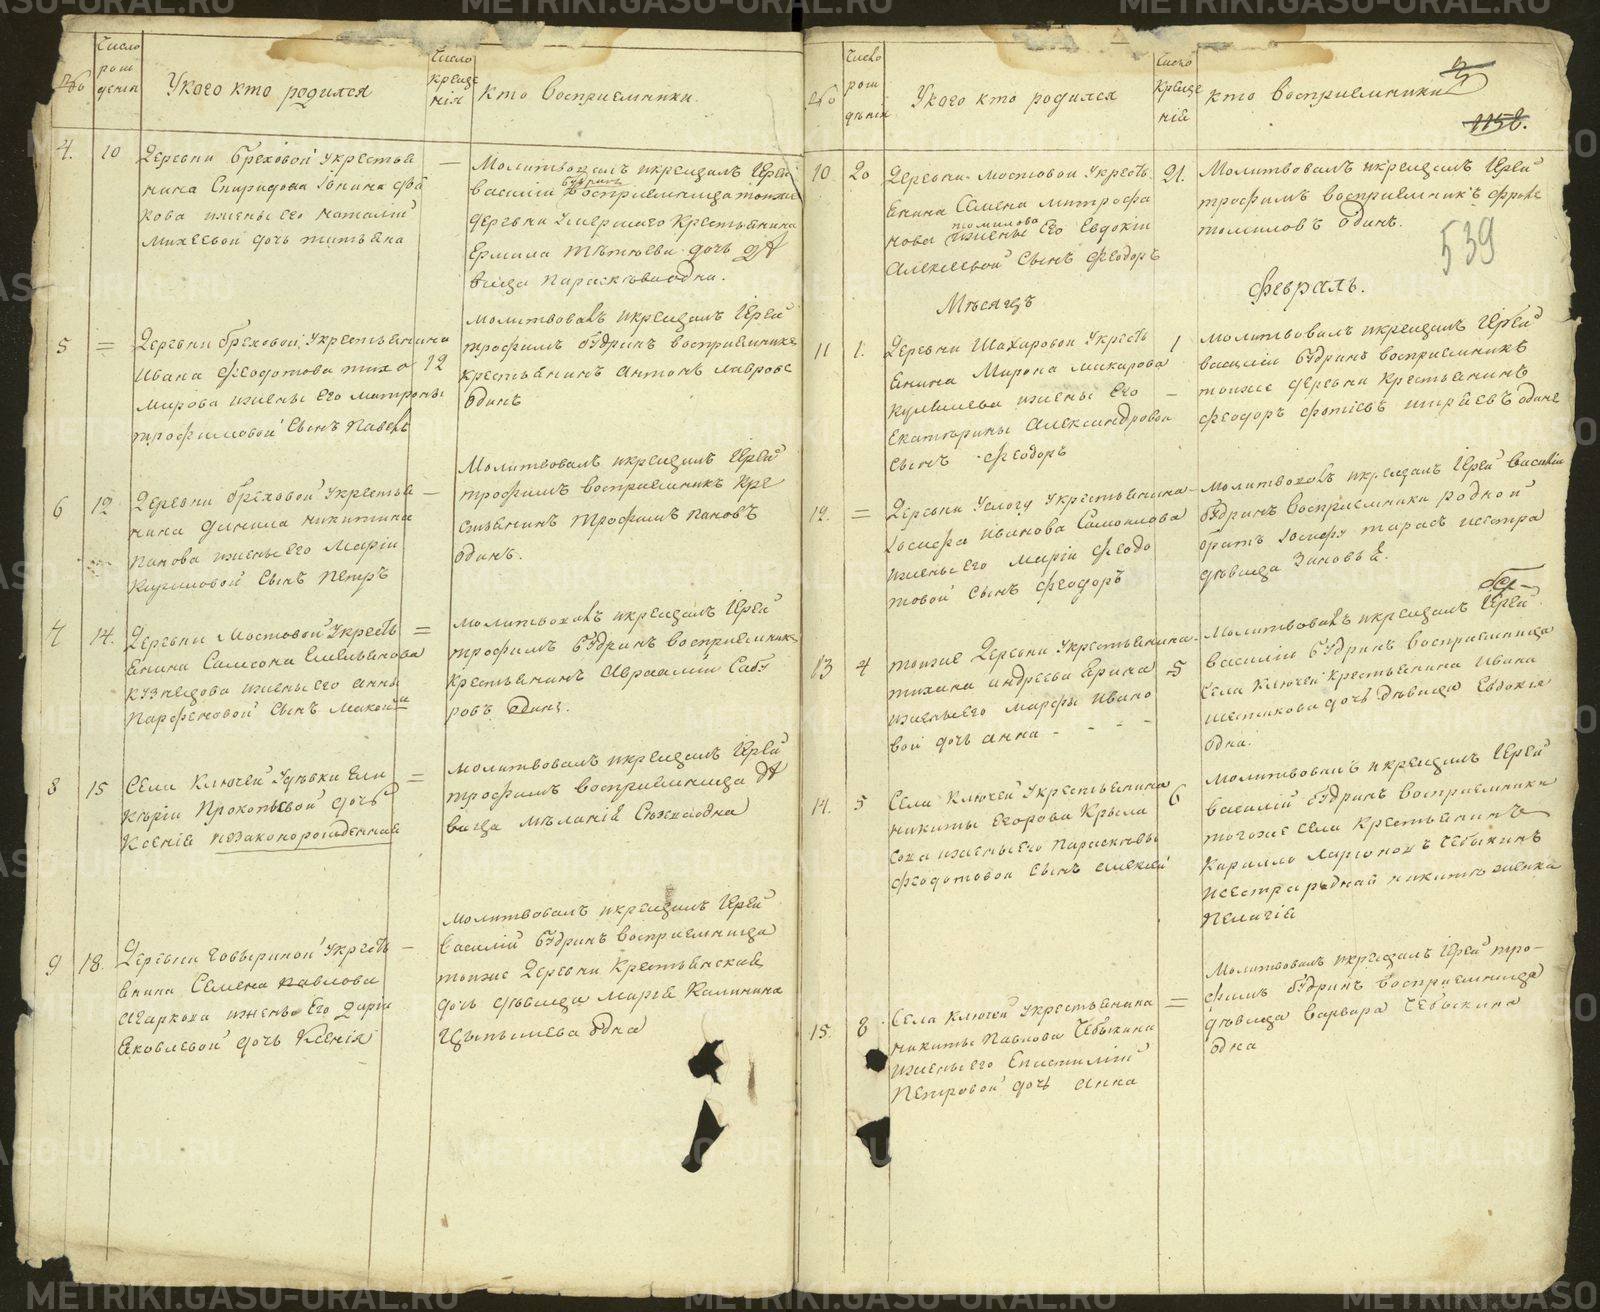 №
Число рож дения
У кого кто родился
Число креще нія
Кто восприемники.
4.
10
Деревни Бреховой у крестья
нина Спиридона
жены его наталіи
Михеевой дочь татьяна
—
Молитвовалъ и крещалъ Іерей
василій Будринъ восприемница тоя же
деревни умершаго крестьянина
Ермила дочь дѣ
вица параскева одна.
5
=
Деревни Бреховой у крестьянина
Ивана Феодотова тихо
мирова жены его матроны
трофимовой сынъ павелъ
12
Молитвовалъ и крещалъ Іерей
трофимъ Будринъ восприемникъ
крестьянинъ антонъ лавровъ
одинъ
6
12
Деревни Бреховой у крестья
нина данила никитина
панова жены его Маріи
Кириловой сынъ петръ
—
Молитвовалъ и крещалъ Іерей
трофимъ восприемникъ кре
стьянинъ трофимъ пановъ
одинъ.
7
14.
Деревни Мостовой у кресть
янина Самсона Емельянова
кузнецова жены его анны
парфеновой сынъ
=
Молитвовалъ и крещалъ Іерей
трофимъ Будринъ восприемникъ
крестьянинъ Авраамій Сабу
ровъ одинъ.
8
15
Села Ключей у дѣвки Гли
керіи Прокопьевой дочь
Ксенія незаконорожденная
=
Молитвовалъ и крещалъ Іерей
трофимъ восприемница дѣ
вица мѣланія одна
9
18.
Деревни Говыриной у кресть
янина Семена павлова
Агаркова жены Его дарьи
Яковлевой дочь Ксенія
—
Молитвовалъ и крещалъ Іерей
василій Будринъ восприемница
тоя же Деревни крестьянская
дочь дѣвица Марія Калинина
Цыпышева одна
№
Число рож дѣнія
У кого кто родился
Число креще ній
кто восприемники
1158.
539
10
20
Деревни мостовой у кресть
янина Семена митрофа
нова томилова жены Его Евдокіи
Алексеевой сынъ Феодоръ
21.
Молитвовалъ и крещалъ Іерей
трофимъ восприемникъ
томиловъ одинъ.
Мѣсяцъ
Февраль.
11
1.
Деревни Шахаровой у кресть
янина Мирона макарова
жены Его
Екатерины Александровой
сынъ Феодоръ
1
—
Молитвовалъ и крещалъ Іерей
василій Будринъ восприемникъ
тоя же деревни крестьянинъ
Феодоръ фотіевъ одинъ
12.
=
Деревни у крестьянина
Іосифа иванова Самоилова
жены его Маріи Феодо
товой сынъ Феодоръ
—
Молитвовалъ и крещалъ Іерей василій
Будринъ восприемники родной
братъ Іосифу тарасъ и сестра
дѣвица Зиновья.
13
4
тоя же Деревни у крестьянина
тихана андреева Ерина
жены его марфы ивано
вой дочь анна - - - -
5
Молитвовалъ и крещалъ Іерей
василій Будринъ восприемница
села Ключей крестьянина ивана
шестакова дочь дѣвица Евдокія
одна.
14.
5
Села Ключей у крестьянина
никиты Егорова Крыла
сова жены его параскевы
Феодотовой сынъ алексій
6
Молитвовалъ и крещалъ Іерей
василій Будринъ восприемники
того же села крестьянинъ
Карилло Ларіоновъ Чебыкинъ
и сестра родная никитѣ
пелагія
15.
8
Села Ключей у крестьянина
никиты Павлова Чебыкина
жены его
петровой дочь анна
=
Молитвовалъ и крещалъ Іерей тро-
фимъ Будринъ восприемница
дѣвица варвара Чебыкина
одна
METRIKI.GASO-URAL.RU